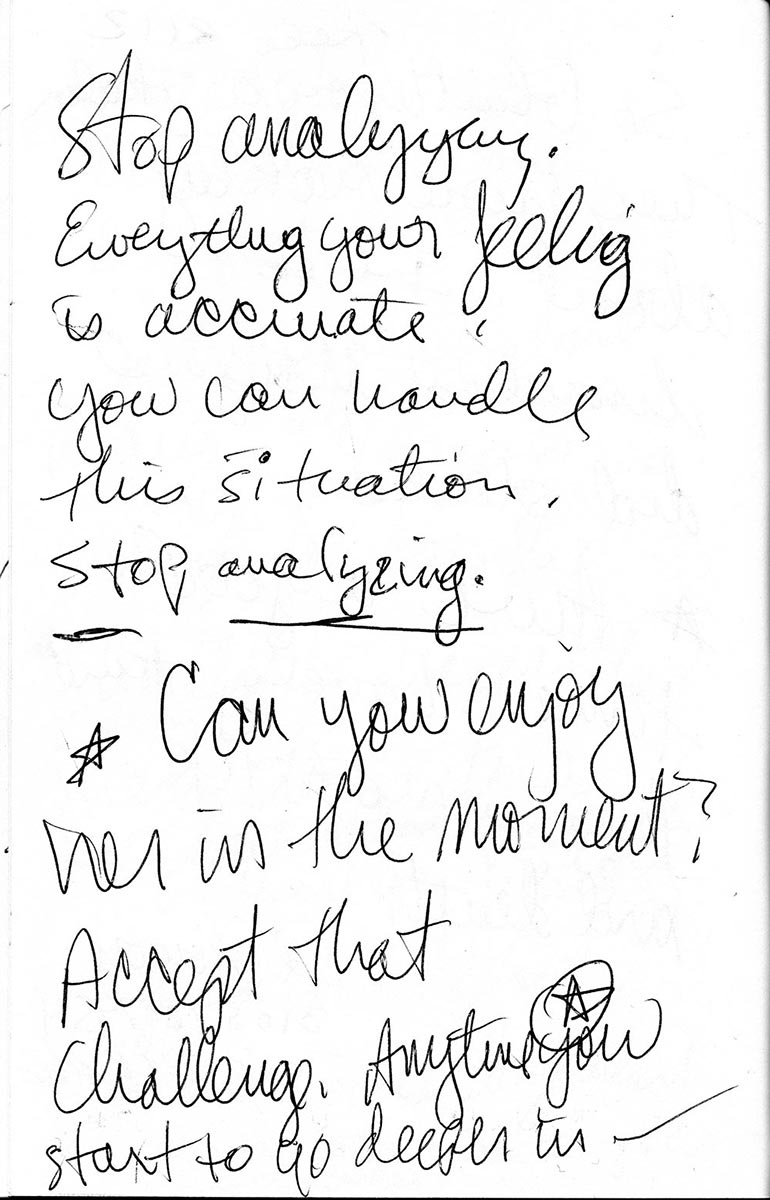 Stop analyzing.
Everything your feeling
is accurate.
you can handle
this situation.
Stop analyzing.
☆ Can you enjoy
her in the moment?
Accept that
challenge. Anytime ☆ you
start to go deeper in —